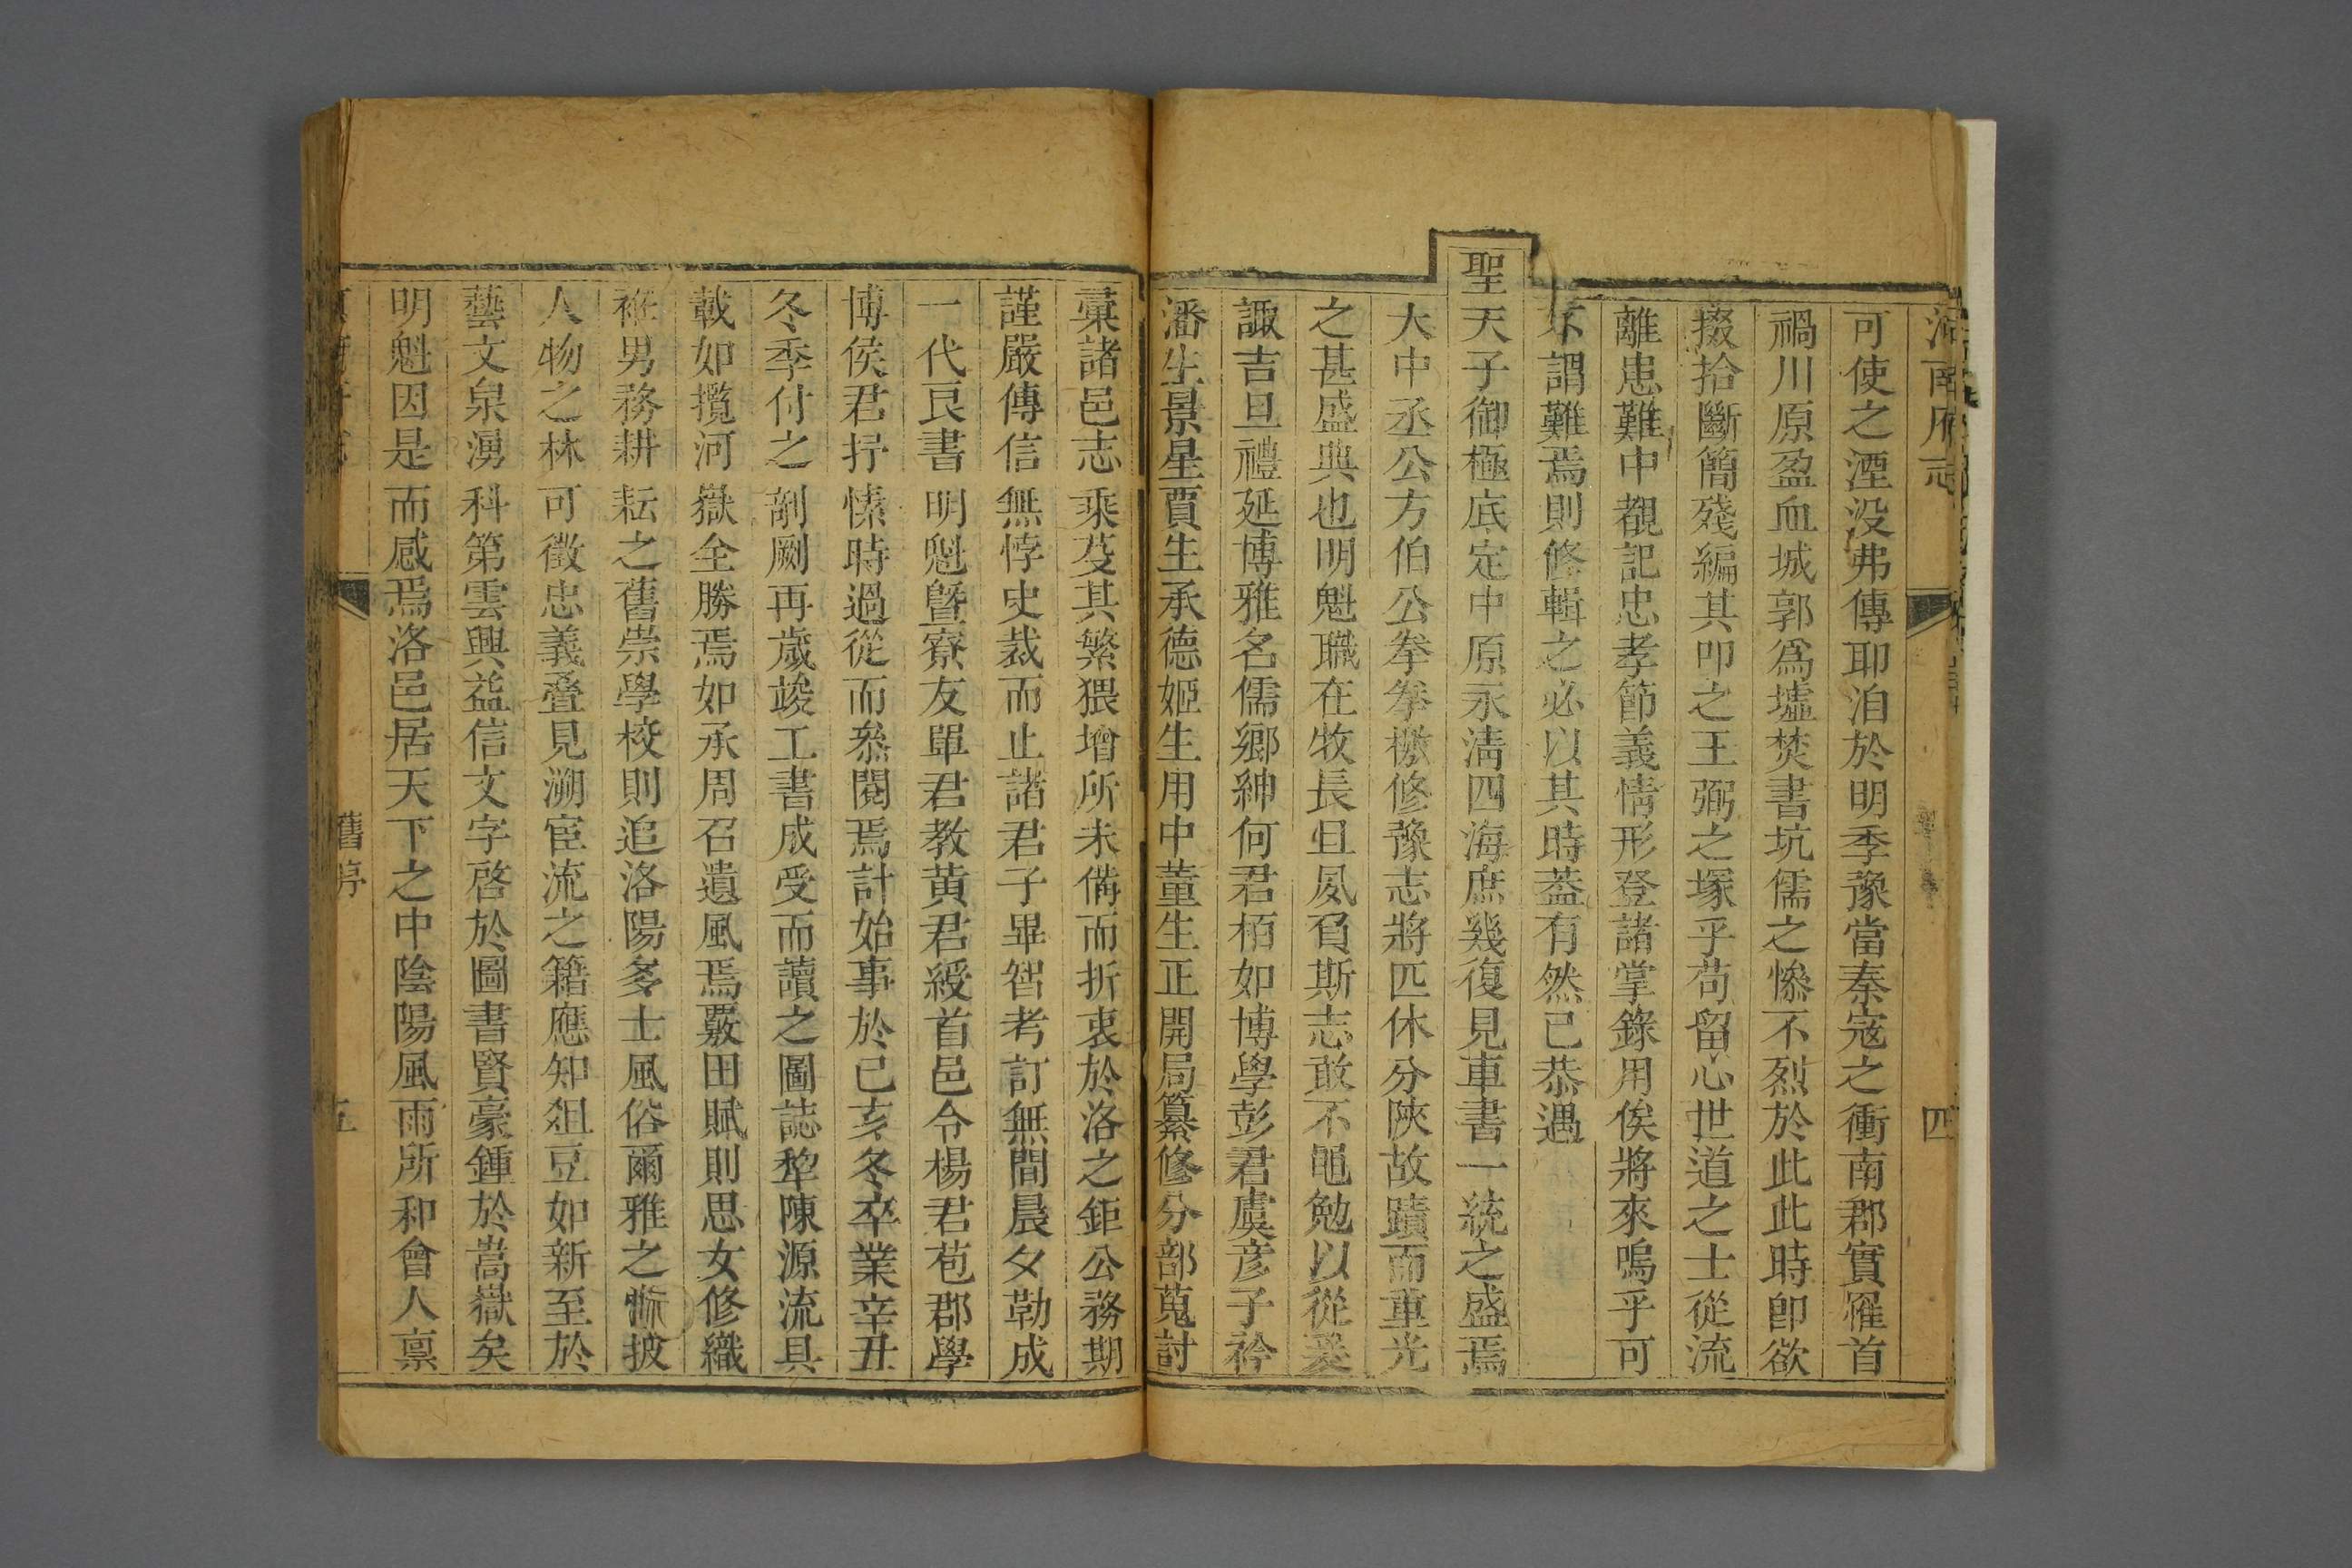 河南府志
四
可使之湮没弗傳耶洎於明季豫當秦寇之衝南郡實罹首
禍川原盈血城郭為墟焚書坑儒之慘不烈於此此時卽欲
掇拾斷簡殘編其叩之王弼之塚乎苟留心世道之士從流
離患難中覩記忠孝節義情形登諸掌錄用俟將來嗚乎可
不謂難焉則修輯之必以其時葢有然已恭遇
聖天子御極底定中原永清四海庶幾復見車書一統之盛焉
大中丞公方伯公拳拳檄修豫志將匹休分陝故蹟而重光
之甚盛典也明魁職在牧長且夙負斯志敢不黽勉以從爰
諏吉旦禮延博雅名儒鄉紳何君栢如博學彭君虞彦子衿
潘生景星賈生承德姬生用中董生正開局纂修分部蒐討
彚諸邑志乘芟其繁猥增所未備而折衷於洛之鉅公務期
謹嚴傳信無悖史裁而止諸君子畢智考訂無間晨夕勒成
一代良書明魁曁寮友單君教黄君綬首邑令楊君苞郡學
博侯君抒愫時過從而叅閱焉計始事於己亥冬卒業辛丑
冬季付之剞劂再歲竣工書成受而讀之圖誌犂陳源流具
載如攬河嶽全勝焉如承周召遺風焉覈田賦則思女修織
袵男務耕耘之舊崇學校則追洛陽多士風俗爾雅之慚披
人物之林可徵忠義叠見溯宦流之籍應知俎豆如新至於
藝文泉湧科第雲興益信文字啓於圖書賢豪鍾於嵩嶽矣
明魁因是而感焉洛邑居天下之中陰陽風雨所和會人禀
舊序
五